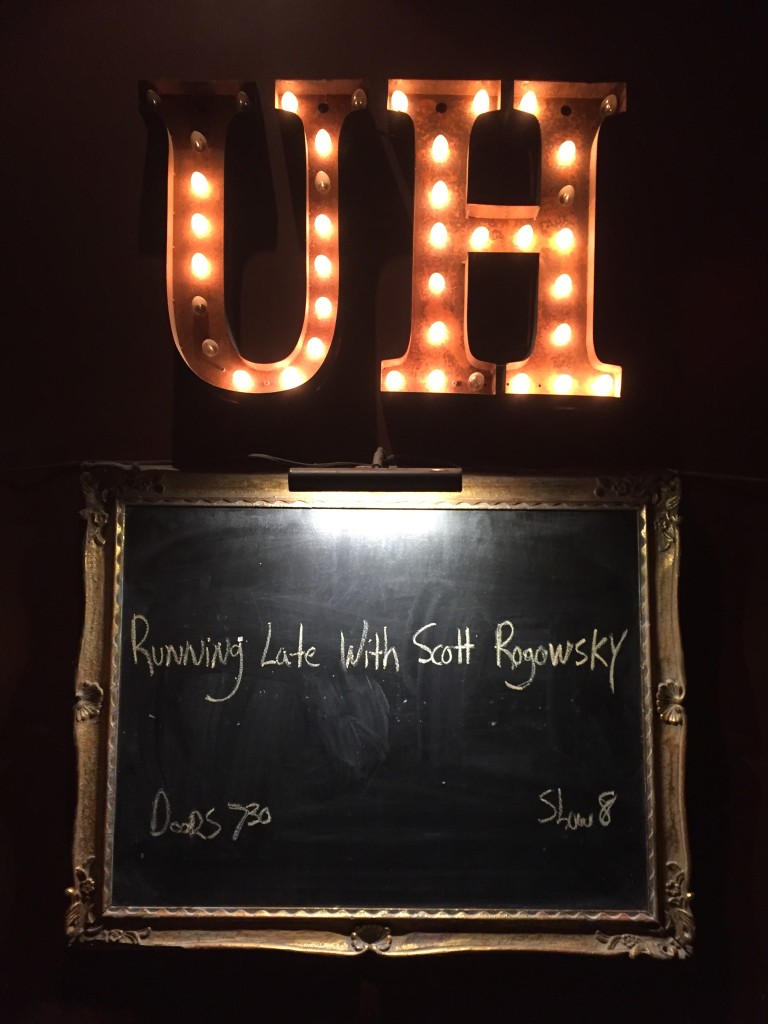 UH
Running Late With Scott Rogowsky
Doors 730 Show 8